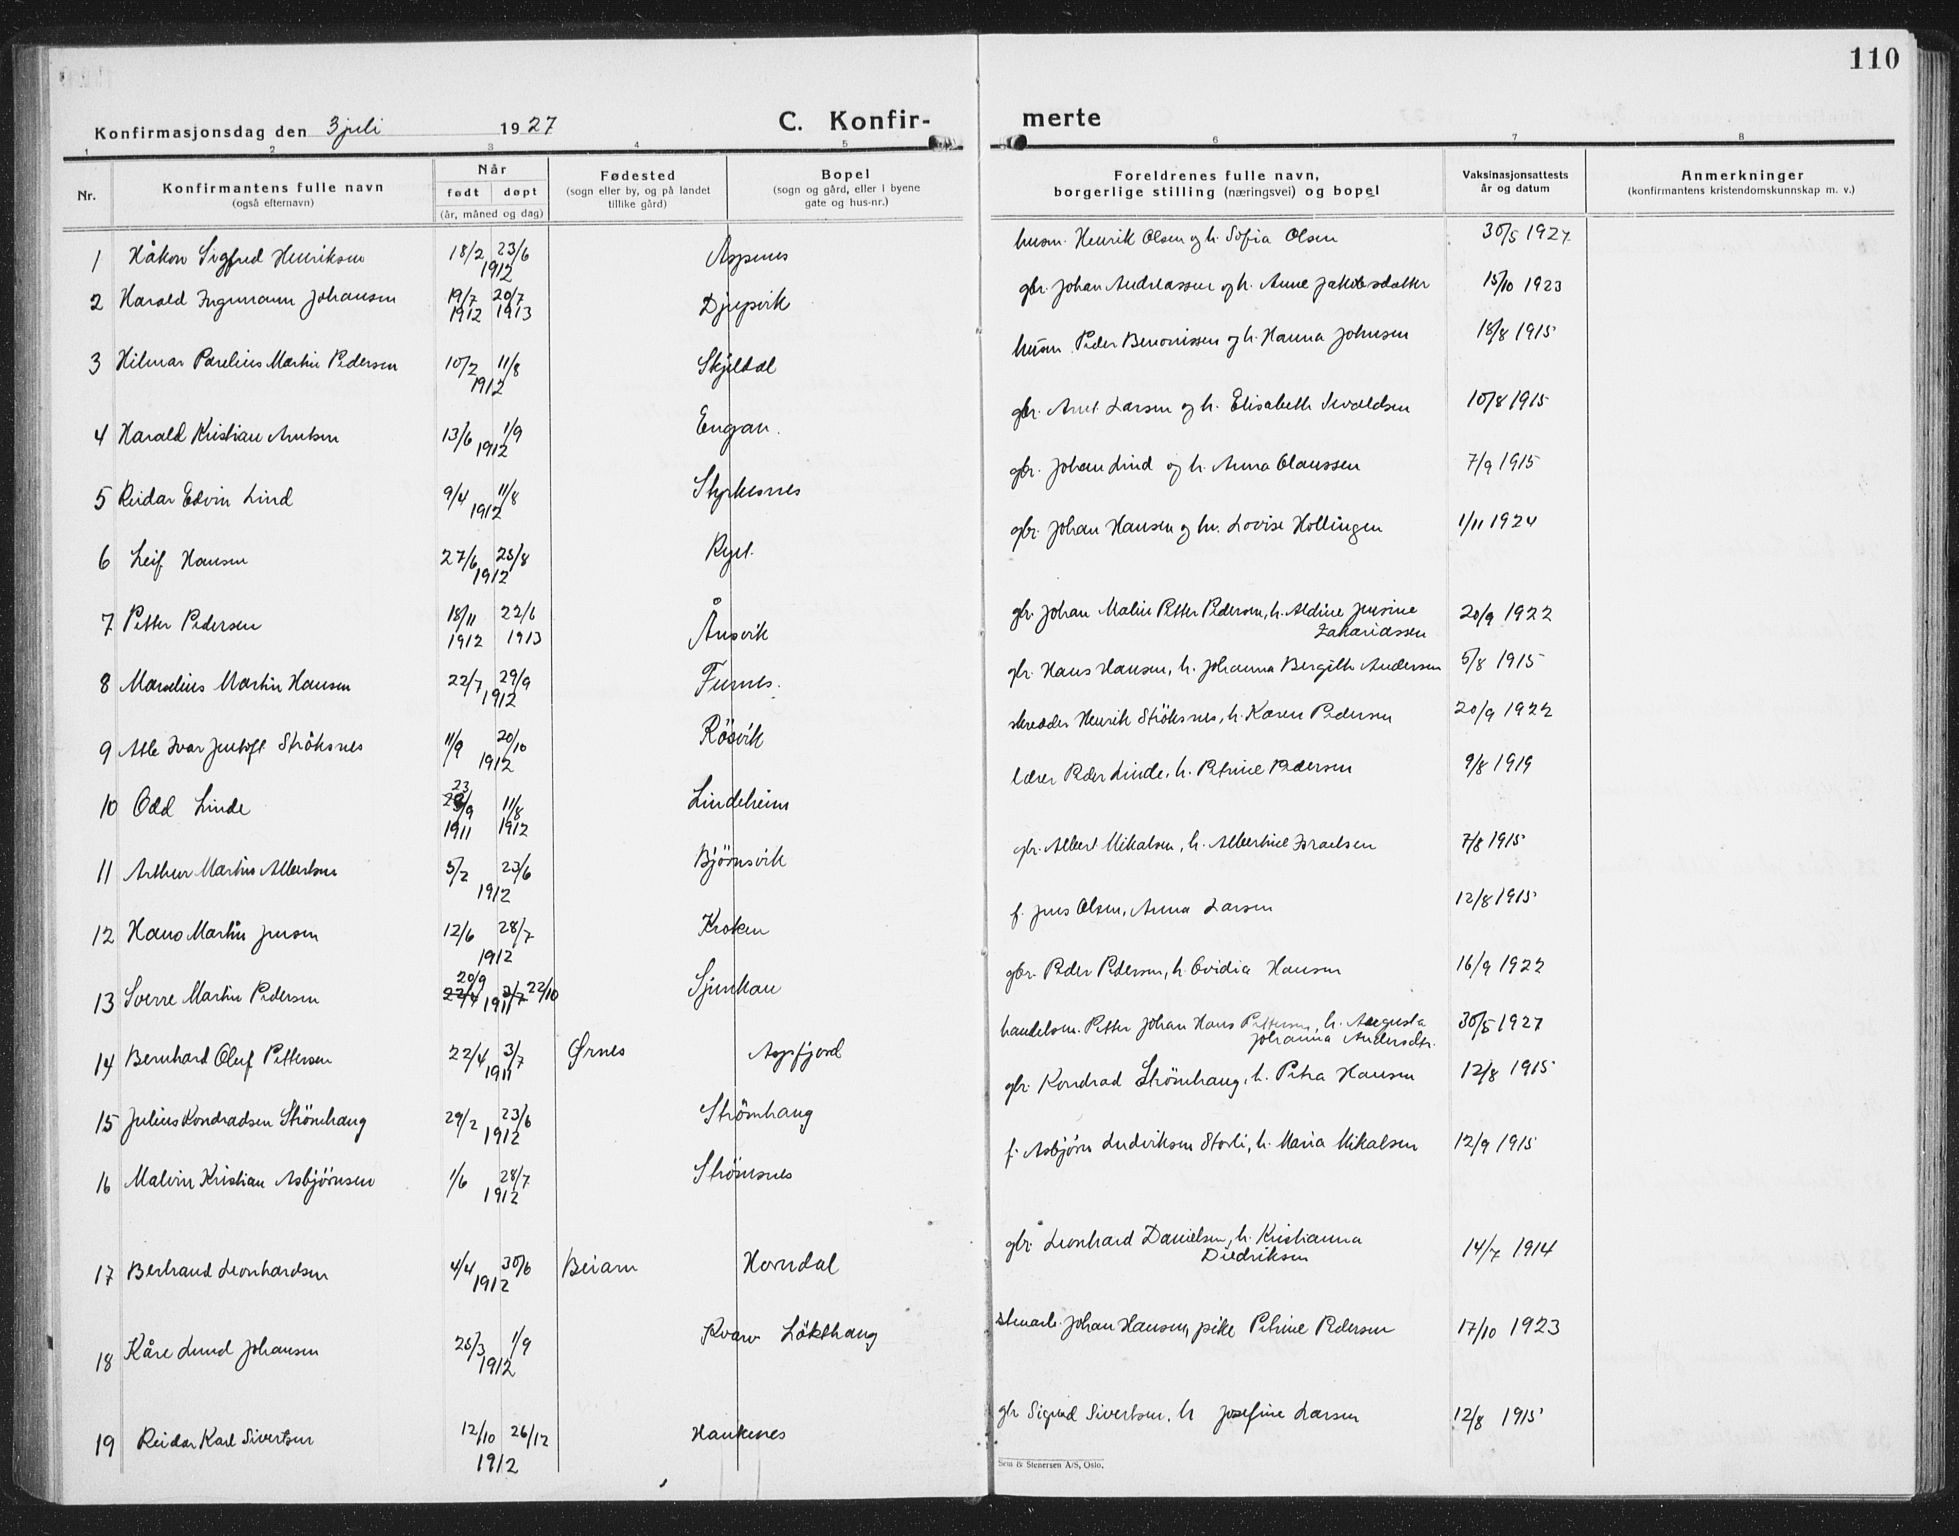 110
Konfirmasjonsdag den 3 juli 1927 C. Konfir- merte
1 2 3 4 5 6 7 8
Nr. Konfirmantens fulle navn (også efternavn) Når født døpt (år, måned og dag) Fødested (sogn eller by, og på landet tillike gård) Bopel (sogn og gård, eller i byene gate og hus-nr.) Foreldrenes fulle navn, borgerlige stilling (næringsvei) og bopel Vaksinasjonsattests år og datum Anmerkninger (konfirmantens kristendomskunnskap m. v.)
1 Håkon Sigfred Henriksen 18/2 23/6 1912 Aspenes husm. Henrik Olsen og h. Sofia Olsen 30/5 1927
2 Harald Ingemann Johansen 19/7 1912 20/7 1913 Djupvik gbr. Johan Andreassen og h. Anne Jakobsdatter 15/10 1923
3 Hilmar Parelius Martin Pedersen 10/2 11/8 1912 Skjeldal husm. Peder Benonissen og h. Hanna Johnsen 18/8 1915
4 Harald Kristian Arntsen 13/6 1/9 1912 Engan. gbr. Arnt Larsen og h. Elisabeth Sivaldsen 10/8 1915
5 Reidar Edvin Lind 9/4 11/8 1912 Styrkesnes gbr. Johan Lind og h. Anna Claussen 7/9 1915
6 Leif Hansen 27/6 25/8 1912 gbr. Johan Hansen og h. Lovise Hollingen 1/11 1924
7 Petter Pedersen 18/11 1912 22/6 1913 Ånsvik gbr. Johan Malin Petter Pedersen, h. Aldine Jensine Zakariassen 20/9 1922
8 Marselius Martin Hansen 22/7 29/9 1912 Furnes. gbr. Hans Hansen, h. Johanna Bergith Andersen 5/8 1915
9 Atle Ivar Jentoft Ströksnes 11/9 20/10 1912 Rösvik skredder Henrik Ströksnes, h. Karen Pedersen 20/9 1922
10 Odd Linde 23/9 1911 11/8 1912 Lindeheim lærer Peder Linde, h. Petrine Pedersen 9/8 1919
11 Arthur Martin Albertsen 5/2 23/6 1912 Bjørnsvik gbr. Albert Mikalsen, h. Albertine Israelsen 7/8 1915
12 Hans Martin Jensen 12/6 28/7 1912 Kroken f. Jens Olsen, Anna Larsen 12/8 1915
13 Sverre Martin Pedersen 20/9 22/4 1911 3/7 22/10 Sjunkan gbr. Peder Pedersen, h. Ovidia Hansen 16/9 1922
14 Bernhard Oluf Pettersen 22/4 3/7 1911 Ørnes Aspfjord handelsm. Petter Johan Hans Pettersen, h. Augusta Johanna Andersdtr. 30/5 1927
15 Julius Kondradsen Strömhaug 29/2 23/6 1912 Strömhaug gbr. Kondrad Strömhaug, h. Petra Hansen 12/8 1915
16 Malvin Kristian Asbjörnsen 1/6 28/7 1912 Strömsnes f. Asbjörn Ludviksen Storli, h. Maria Mikalsen 12/9 1915
17 Bertrand Leonhardsen 4/4 30/6 1912 Beiarn Horndal gbr. Leonhard Danielsen, h. Kristianna Diedriksen 14/7 1914
18 Kåre Lund Johansen 25/3 1/9 1912 Kvarv Lökthaug stenarb. Johan Hansen, pike Petrine Pedersen 17/10 1923
19 Reidar Karl Sivertsen 12/10 26/12 1912 Hankenes gbr Sigvad Sivertsen, h Josefine Larsen 12/8 1915
Sem & Stenersen A/S, Oslo.